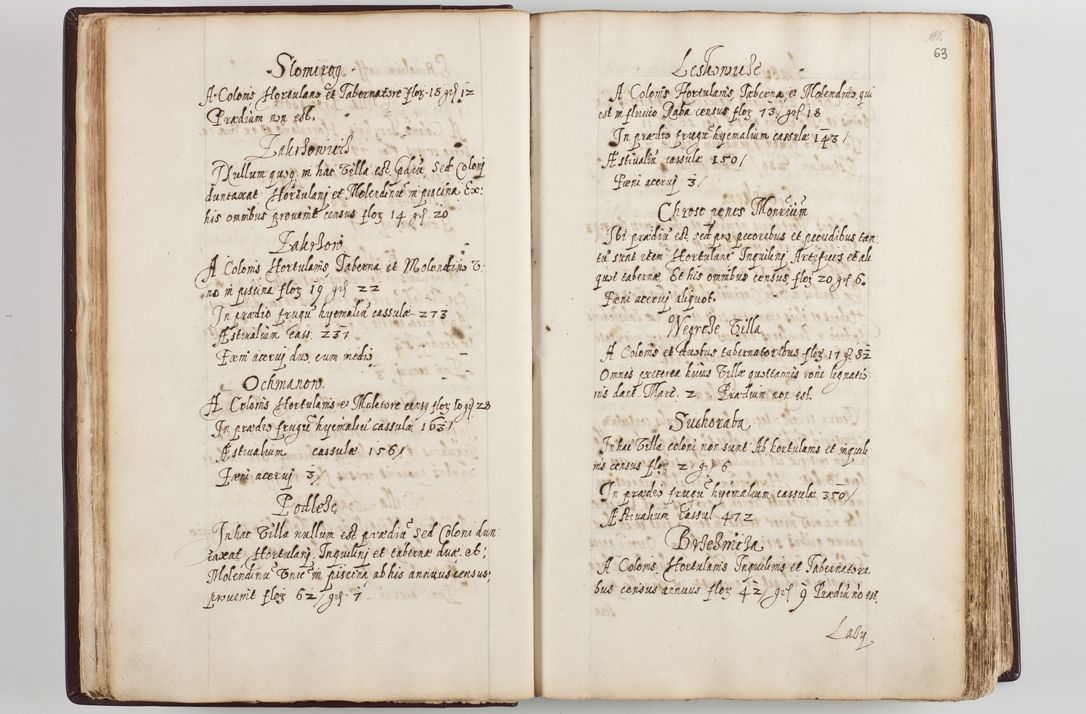 Slomirog
A Colonis Hortulano et Tabernatore flor 18 gr 12
Prædium non est.
Zakrzowiecz
Nullum quoq in hac Villa est prædiũ, sed Colonj
duntaxat Hortulanj et Molendinũ in piscina Ex:
his omnibus provenit census flor 14 gr 20
Zakrzow
A Colonis Hortulanis, Taberna et Molendino V:
no in piscina flor 19 gr 22
In prædio frugũ hyemaliũ cassulæ 273
Æstivalium cass. 237
Fœni acervj duo cum medio
Ochmanow
A Colonis Hortulanis et Molitore censq flor 10 gr 28
In prædio frugũ hyemaliũ cassulæ 163/
Æstivalium cassulæ 156/
Fœni acervj 3/
Podleze
In hac Villa nullum est prædiũ, sed Coloni dun
taxat Hortulanj, Inquilinj et tabernæ duæ, et;
Molendinũ Vnũ in piscina, ab his annuus census;
provenit flor 62/ gr 7
63
A Colonis Hortulanis, Taberna, et Molendino, qui
est in fluvio Raba census flor 73 gr 18
In prædio frugũ hyemalium cassulæ 143/
Æstivaliũ cassulæ 150/
Fœni acervj 3/
Chrosc penes
Ibi prædiũ est sed pro pecoribus et pecudibus tan
tũ sunt item Hortulani Inquilinj Artifices et ali
quot tabernæ Ex his omnibus census flor 20 gr 6.
Fœni acervj aliquot.
Wegrzcze Villa
A Colonis et duobus tabernatoribus flor 17 g.
Omnes præterea huius Villæ quottannis lignatio
nis dant Marc. 2. Prædium non est.
Suchoraba
In hac Villa coloni non sunt Ab hortulanis et inquili
nis census flor 2 gr 6
In prædio frugũ hyemalium cassulæ 350/
Æstivalium Cassul 472
Brzeznicza
A Colonis Hortulanis Inquilinis et Tabernatori
bus census annuus flor 42/ gr 9 Prædiũ nõ est.
Lasy